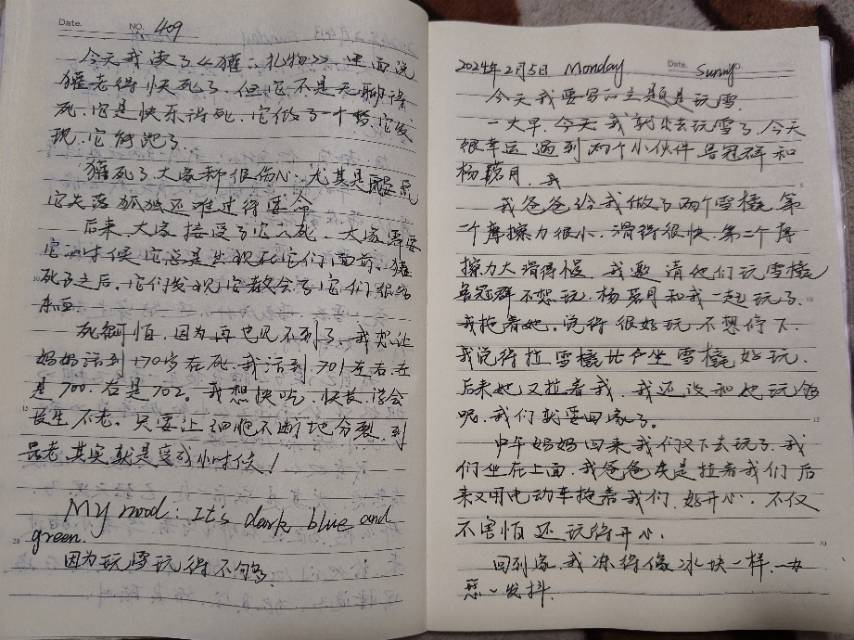 Date. NO. 409
今天我读了《獾的礼物》,里面说
獾老得快死了,但它不是无聊得
死,它是快乐得死,它做了一个梦,它发
现,它能跑了.
獾死了大家都很伤心,尤其是
它失落孤独还难过得要命
后来,大家接受了它的死,大家需要
它的时候它总是出现在它们面前,獾
死了之后,它们发现它教会了它们很多
东西.
死很可怕,因为再也见不到了,我想让
妈妈活到170岁在死,我活到701左右,左
是700,右是702。我想快吃,快长,
长生不老,只要让细胞不断地分裂,到
最老其实就是变成小时候!
My mood: It's dark blue and
green.
因为玩雪玩得不够
2024年2月5日 Monday Date. Sunny
今天我要写的主题是玩雪.
一大早,今天我就出去玩雪了,今天
很幸运遇到两个小伙伴吕冠群和
杨 月.
我爸爸给我做了两个雪橇,第
一个摩擦力很小,滑得很快,第二个摩
擦力大滑得慢,我邀请他们玩雪橇
吕冠群不想玩,杨 月和我一起玩了,
我拖着她,觉得很好玩,不想停下.
我觉得拉雪橇比坐雪橇好玩.
后来她又拉着我,我还没和她玩够
呢,我们就要回家了。
中午妈妈回来我们又下去玩了,我
们坐在上面,我爸爸先是拉着我们后
来又用电动车拖着我们,好开心,不仅
不害怕还玩得开心.
回到家,我冻得像冰块一样,
发抖.